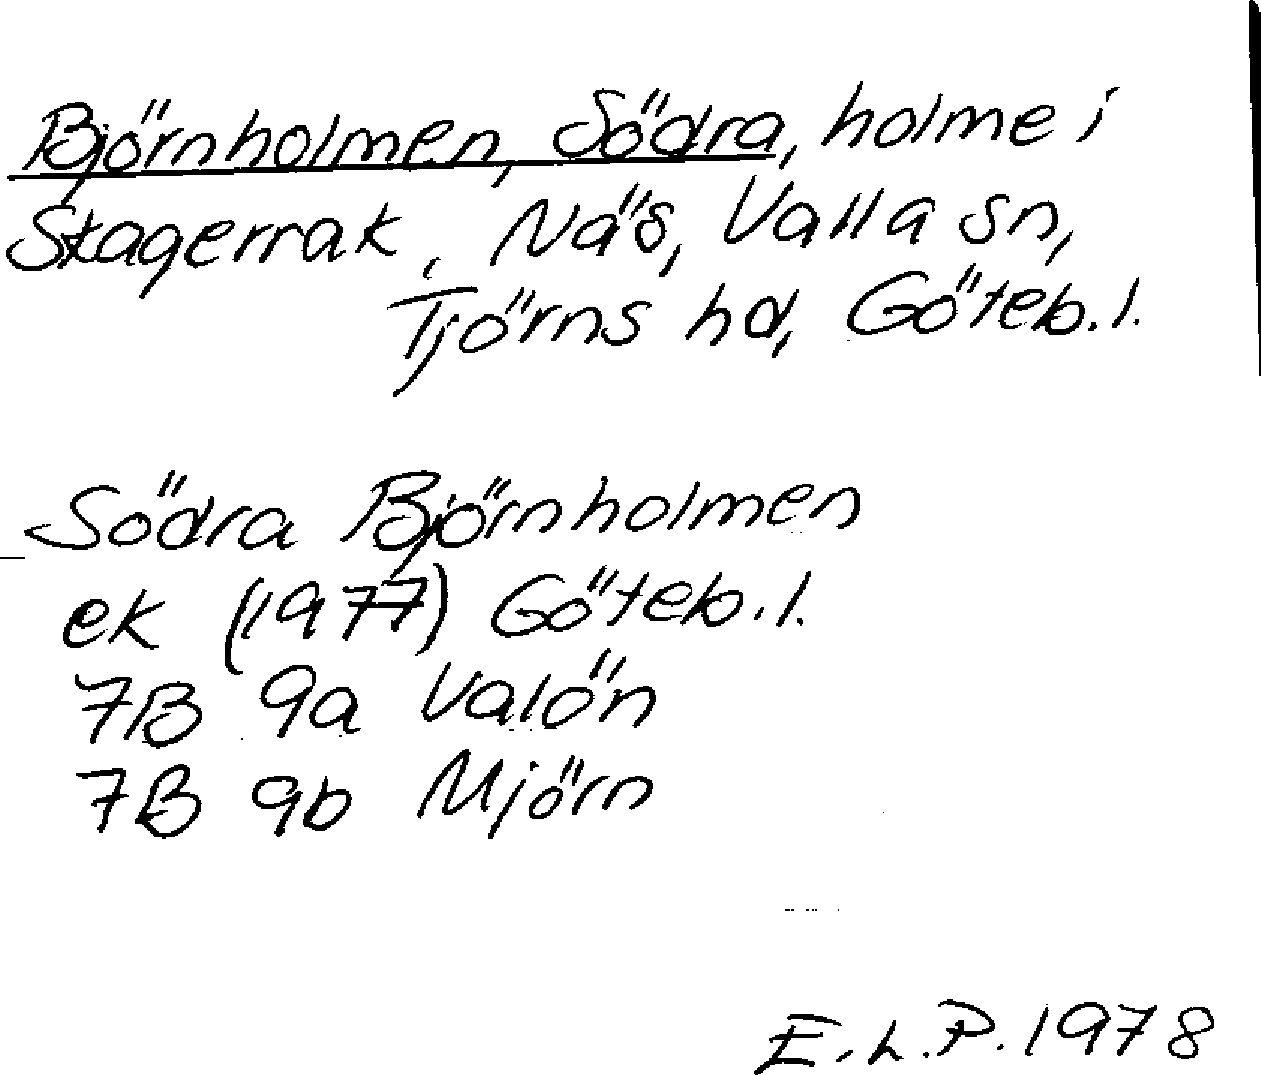 Björnholmen, Södra, holme i
Skagerrak, Näs, Valla sn,
Tjörns hd, Göteb.l.
Södra Björnholmen
ek (1977) Göteb.l.
7B 9a Valön
7B 9b Mjörn
E.L.P. 1978